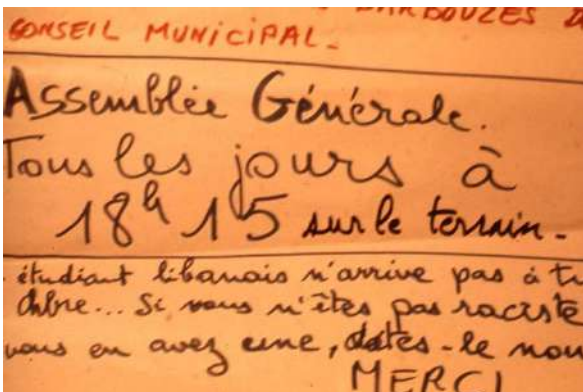 BARBOUZES D
CONSEIL MUNICIPAL.
Assemblée Générale.
Tous les jours à
18h 15 sur le terrain.
étudiant libanais n'arrive pas à tr
chbre... Si vous n'êtes pas raciste
vous en avez une, dites-le nou
MERCI